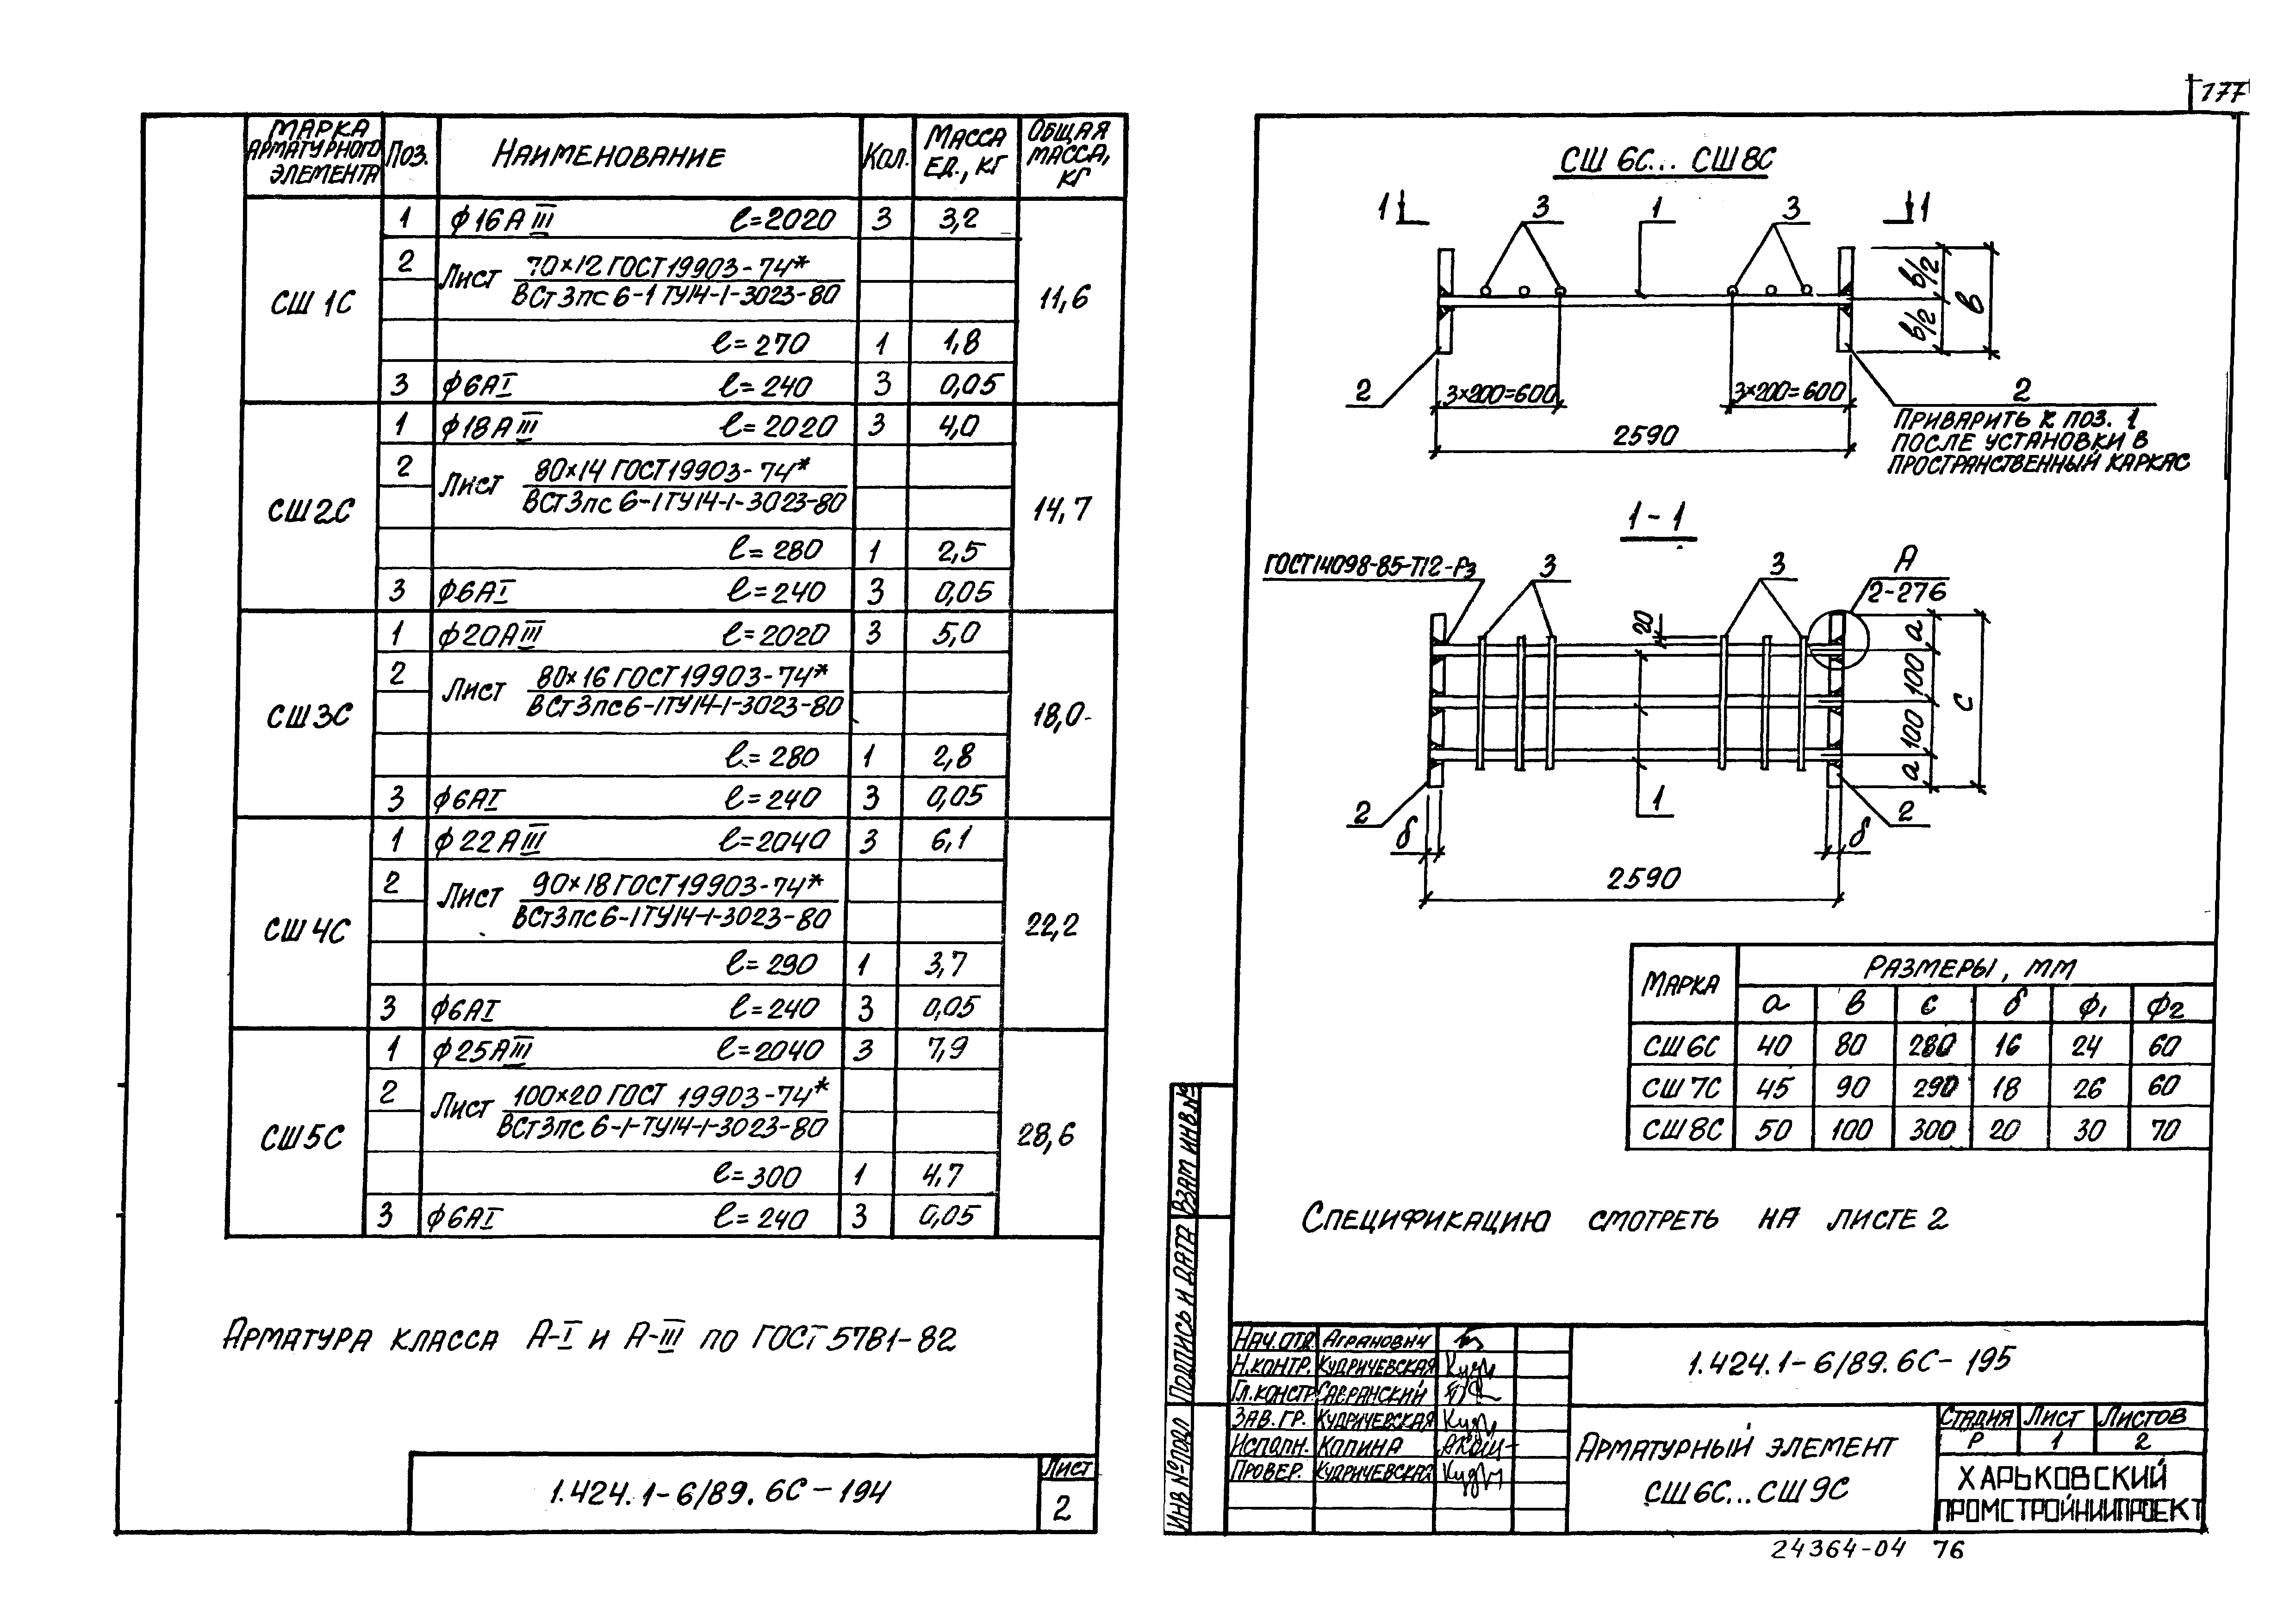 177
МАРКА АРМАТУРНОГО ЭЛЕМЕНТА Поз. НАИМЕНОВАНИЕ Кол. МАССА ЕД., КГ ОБЩАЯ МАССА, КГ
СШ 1С 11,6
1 ф16АIII ℓ=2020 3 3,2
2 Лист 70×12 ГОСТ 19903-74*
ВСт3пс6-1 ТУ14-1-3023-80
ℓ=270 1 1,8
3 ф6АI ℓ=240 3 0,05
СШ2С 14,7
1 ф18АIII ℓ=2020 3 4,0
2 Лист 80×14 ГОСТ 19903-74*
ВСт3пс6-1ТУ14-1-3023-80
ℓ=280 1 2,5
3 ф6АI ℓ=240 3 0,05
СШ3С 18,0
1 ф20АIII ℓ=2020 3 5,0
2 Лист 80×16 ГОСТ 19903-74*
ВСт3пс6-1ТУ14-1-3023-80
ℓ=280 1 2,8
3 ф6АI ℓ=240 3 0,05
СШ4С 22,2
1 ф22АIII ℓ=2040 3 6,1
2 Лист 90×18 ГОСТ 19903-74*
ВСт3пс6-1ТУ14-1-3023-80
ℓ=290 1 3,7
3 ф6АI ℓ=240 3 0,05
СШ5С 28,6
1 ф25АIII ℓ=2040 3 7,9
2 Лист 100×20 ГОСТ 19903-74*
ВСт3пс6-1-ТУ14-1-3023-80
ℓ=300 1 4,7
3 ф6АI ℓ=240 3 0,05
АРМАТУРА КЛАССА А-I И А-III ПО ГОСТ 5781-82
1.424.1-6/89.6С-194
Лист
2
СШ 6С... СШ8С
1 3 1 3 1
в/2
в/2
в
2 3×200=600 3×200=600 2
2590
ПРИВАРИТЬ К ПОЗ. 1
ПОСЛЕ УСТАНОВКИ В
ПРОСТРАНСТВЕННЫЙ КАРКАС
1-1
ГОСТ14098-85-Т12-Рз 3 3 А
2-276
20
а
100
100
а
с
2 1 2
δ δ
2590
МАРКА РАЗМЕРЫ, ММ
а в с δ ф1 ф2
СШ6С 40 80 280 16 24 60
СШ7С 45 90 290 18 26 60
СШ8С 50 100 300 20 30 70
СПЕЦИФИКАЦИЮ СМОТРЕТЬ НА ЛИСТЕ 2
ВЗАМ ИНВ.№
ПОДПИСЬ И ДАТА
ИНВ №ПОДЛ
НАЧ.ОТД. АГРАНОВИЧ
Н.КОНТР. КУДРИЧЕВСКАЯ
ГЛ.КОНСТР САВРАНСКИЙ
ЗАВ.ГР. КУДРИЧЕВСКАЯ
ИСПОЛН. КОПИНА
ПРОВЕР. КУДРИЧЕВСКАЯ
1.424.1-6/89.6С-195
АРМАТУРНЫЙ ЭЛЕМЕНТ
СШ6С...СШ9С
СТАДИЯ ЛИСТ ЛИСТОВ
Р 1 2
ХАРЬКОВСКИЙ
ПРОМСТРОЙНИИПРОЕКТ
24364-04 76